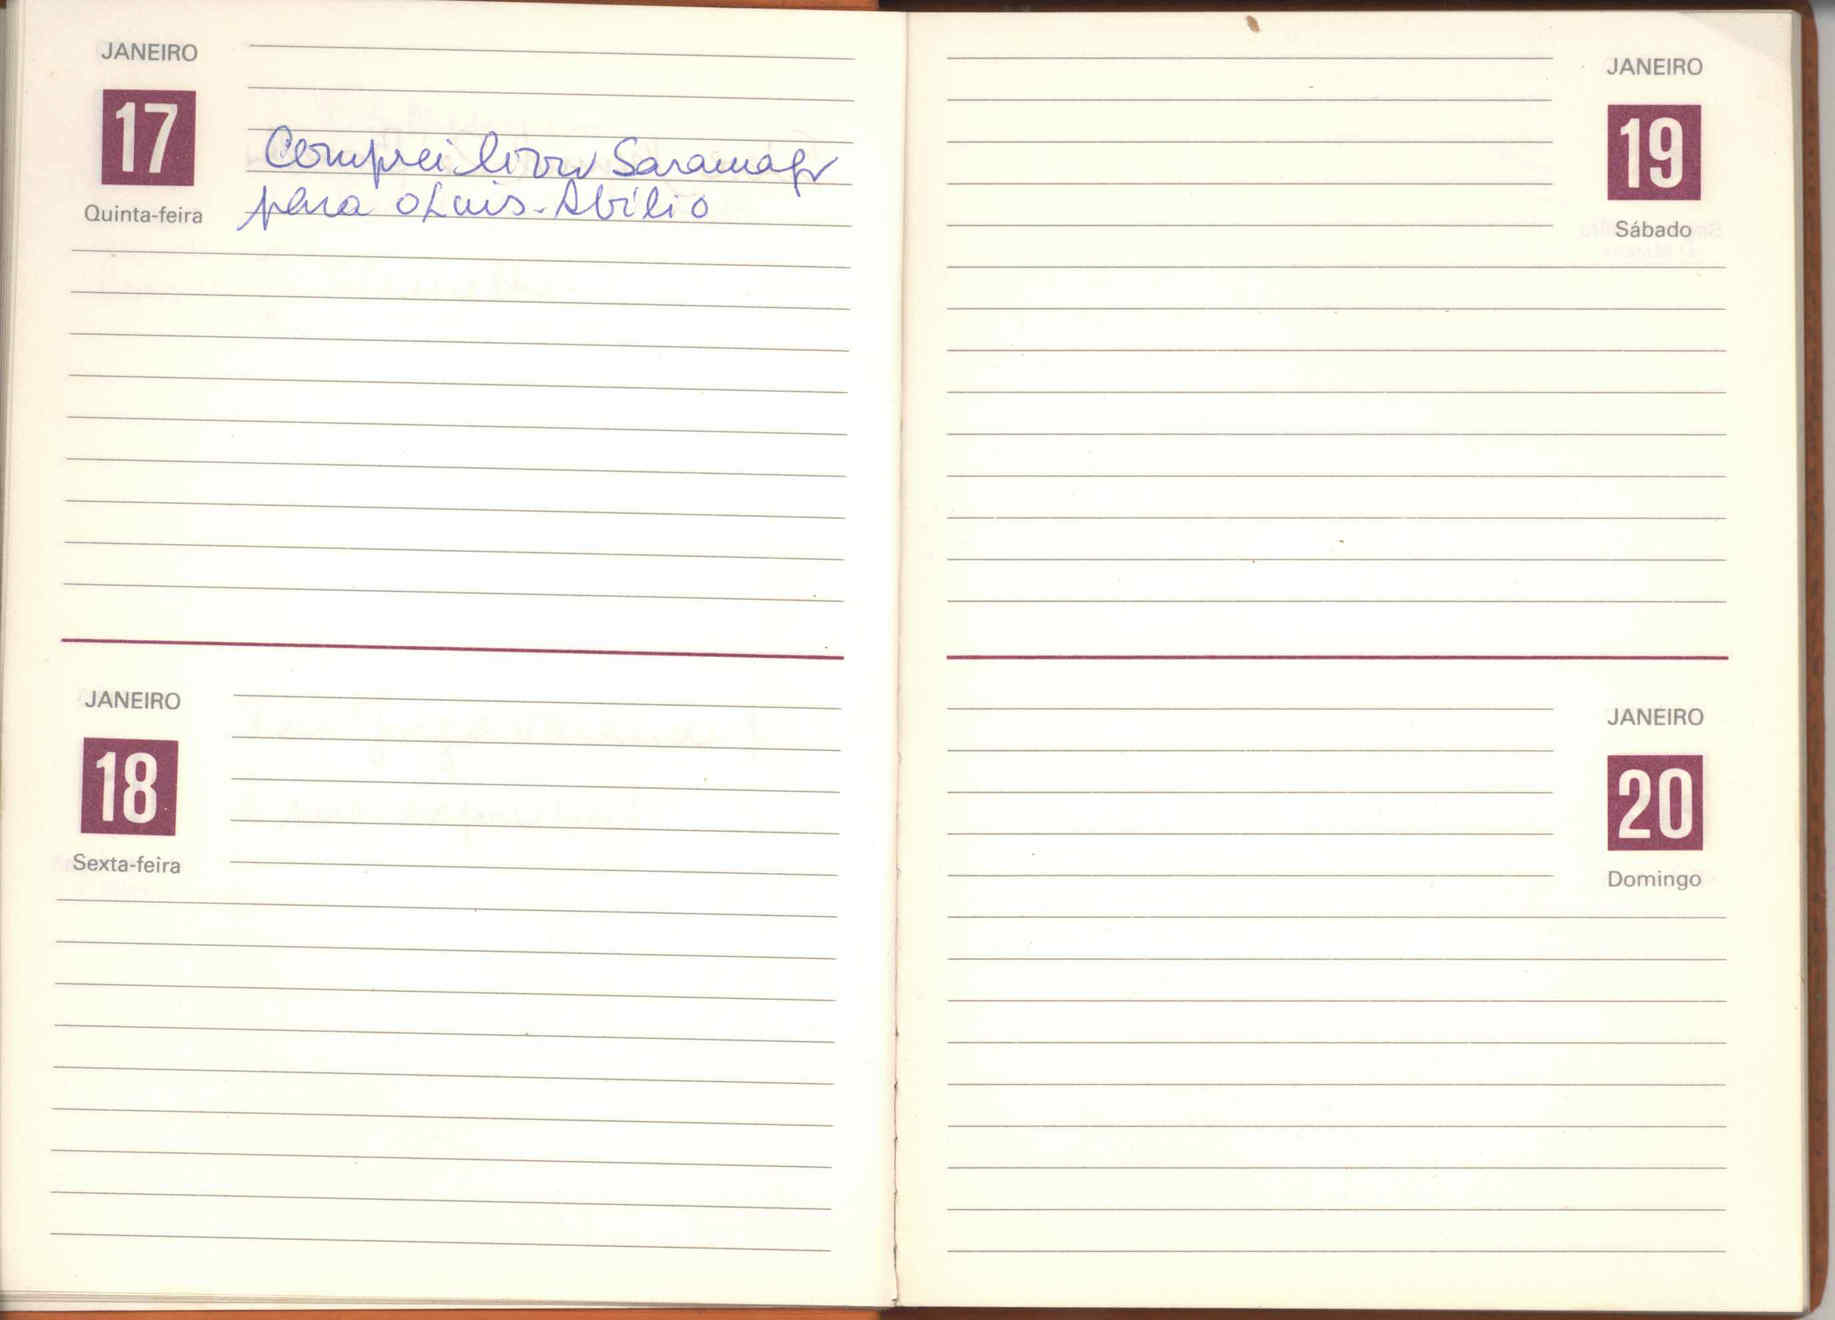 JANEIRO
17
Quinta-feira
Comprei livro Saramago
para o Luis-Abílio
JANEIRO
18
Sexta-feira
JANEIRO
19
Sábado
JANEIRO
20
Domingo